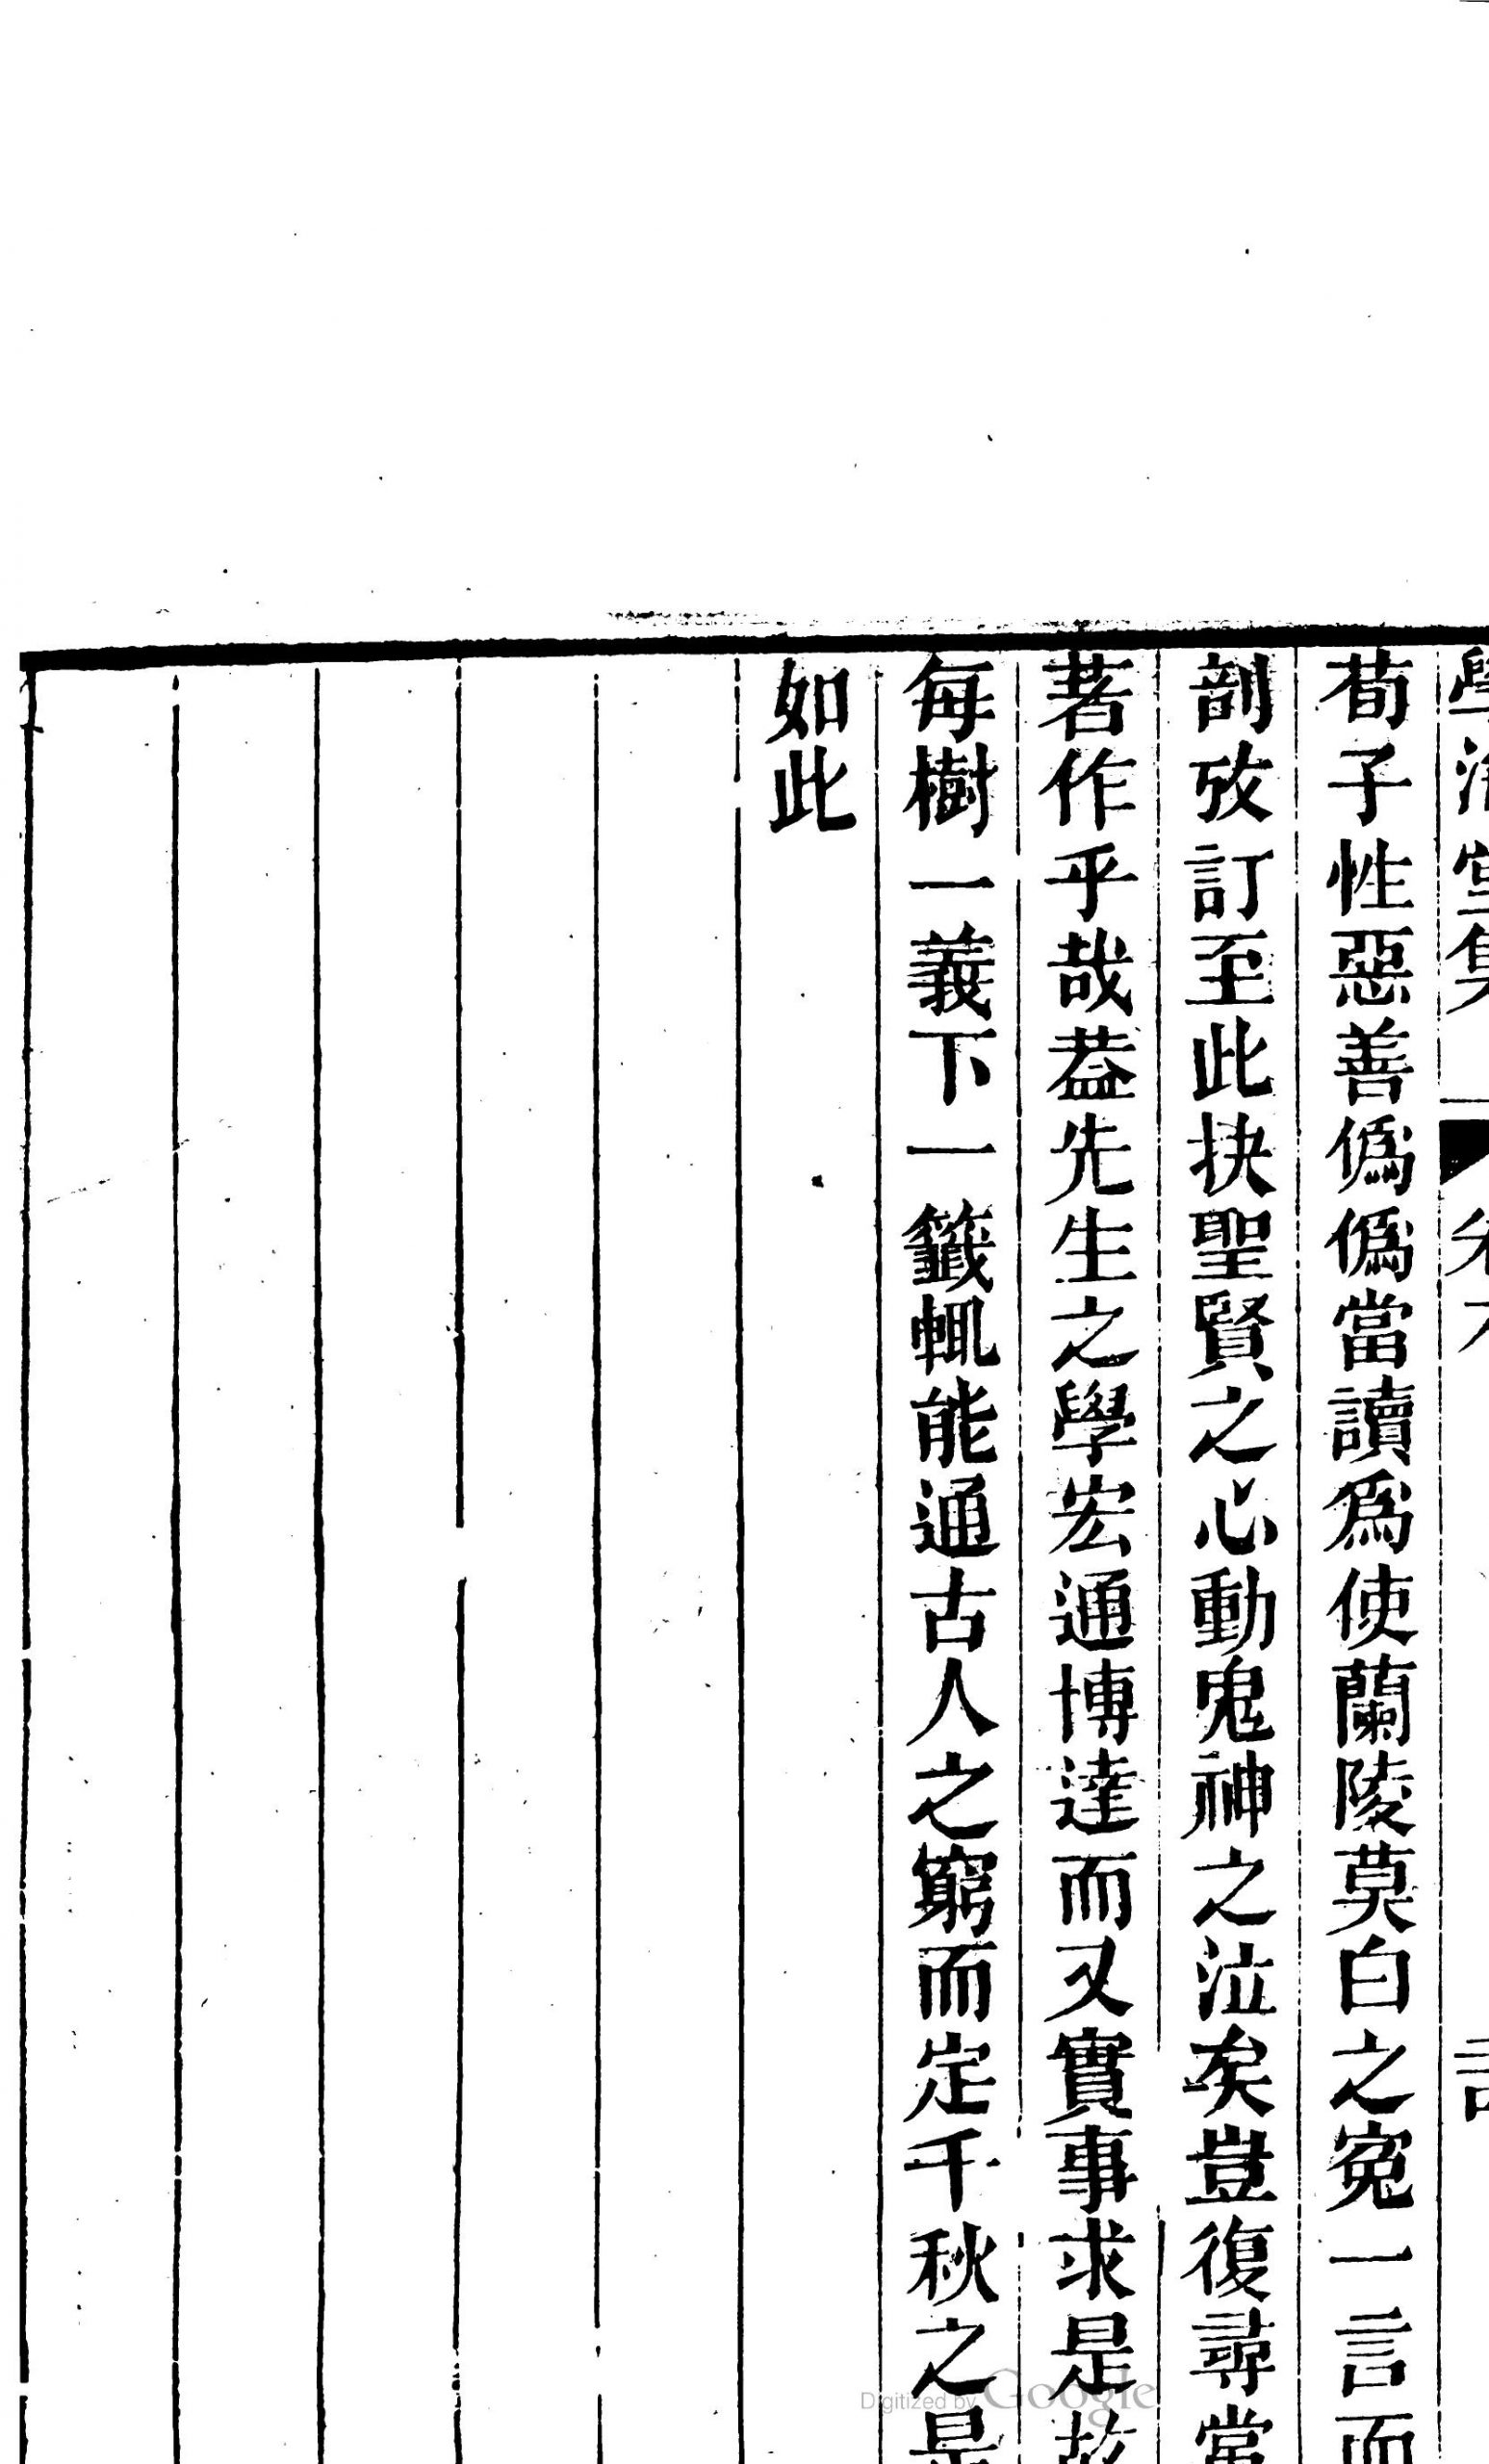 學海堂集 卷
荀子性惡善僞僞當讀爲使蘭陵莫白之寃一言而
剖攷訂至此抉聖賢之心動鬼神之泣矣豈復尋當
著作乎哉葢先生之學宏通博達而又實事求是故
每樹一義下一籤輒能通古人之窮而定千秋之是
如此
Digitized by Google